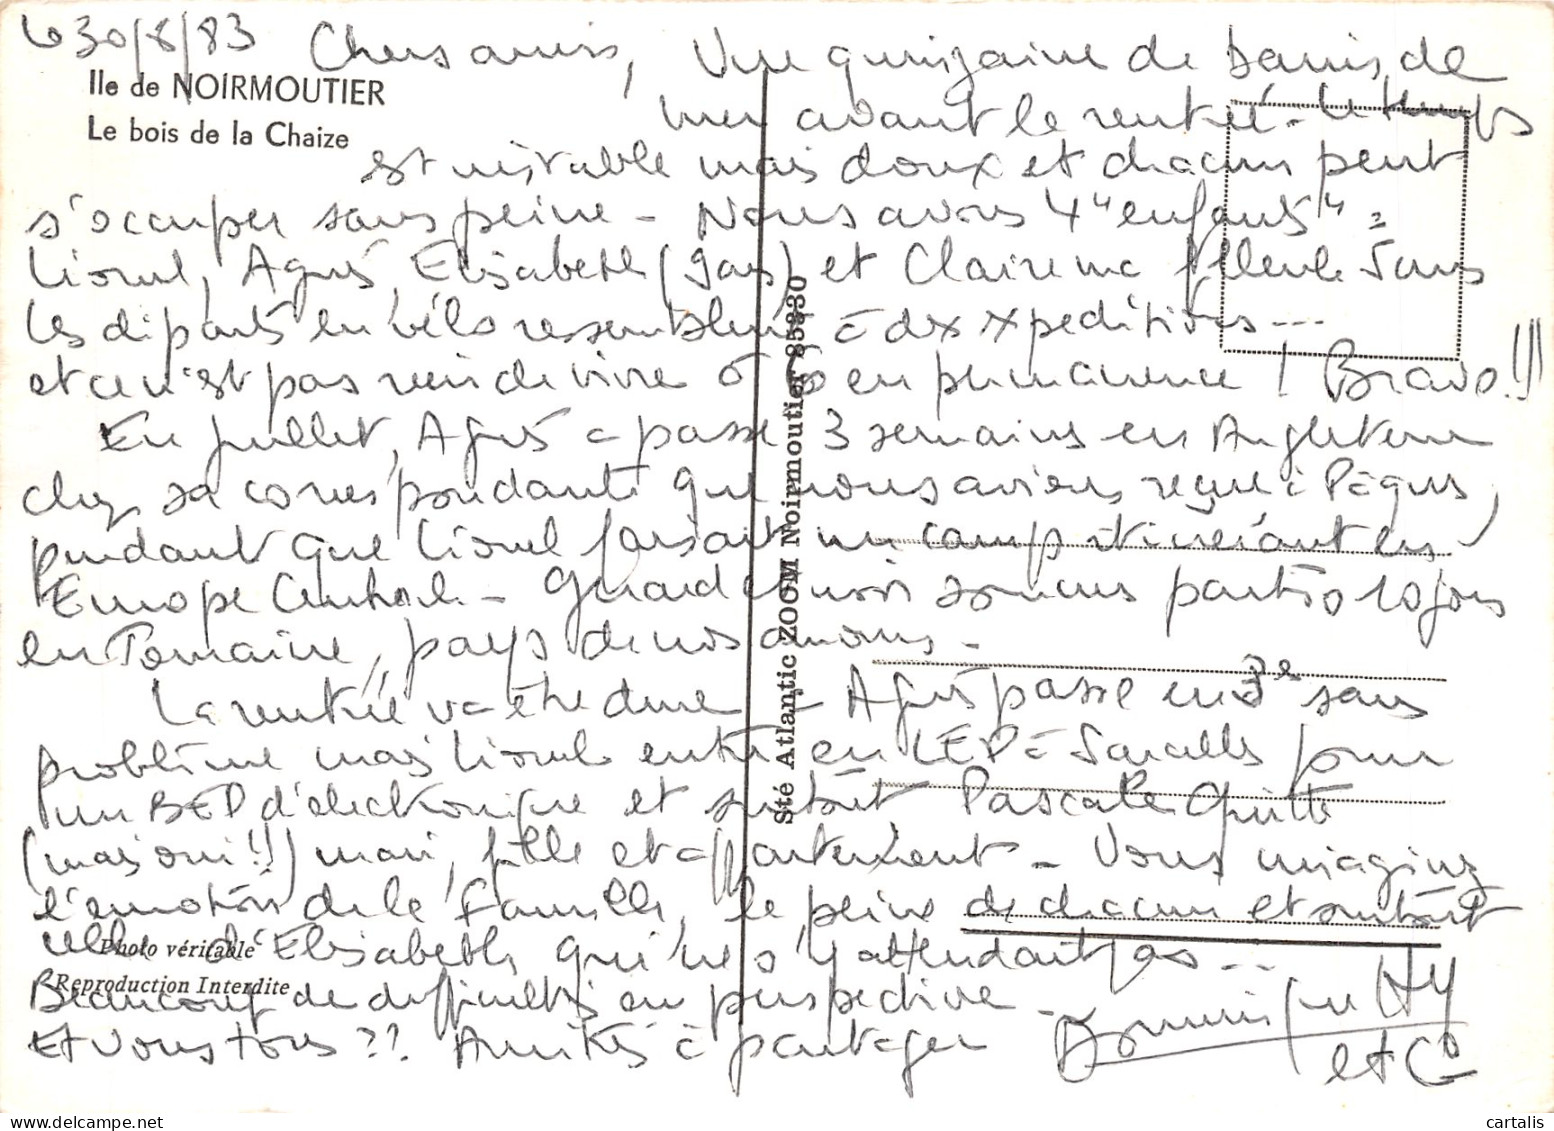 le 30/8/83 Chers amis, Une quinzaine de bains de
Ile de NOIRMOUTIER
mer avant la rentrée - Le temps
Le bois de la Chaize
est instable mais doux et chacun peut
s'occuper sans peine - Nous avons 4 "enfants" =
Lionel, Agnès, Elisabeth (Gas) et Claire ma filleule Sans
Les départs en vélo ressemblent à des expéditions ---
et ce n'est pas rien de vivre à 6 en permanence ! Bravo !!!
En juillet, Agnès a passé 3 semaines en Angleterre
chez sa correspondante que nous avions reçue à Pâques,
pendant que Lionel faisait un camp itinérant en
Europe Centrale - Gérard et moi sommes partis 10 jours
en Romaine, pays de nos amours -
La rentrée va être dure - Agnès passe en 3e sans
problème mais Lionel entre en LEP à Sarcelles pour
un BEP d'électronique et surtout Pascale quitte
(mais oui !!) mari, fille et appartement - Vous imaginez
l'émotion de la famille, la peine de chacun et surtout
celle d'Elisabeth qui ne s'y attendait pas ---
Photo véritable
Reproduction Interdite
Beaucoup de difficultés en perspective -
Et vous tous ?? Amitiés à partager
Dominique
et Co
Sté Atlantic ZOOM Noirmoutier 85330
cartalis